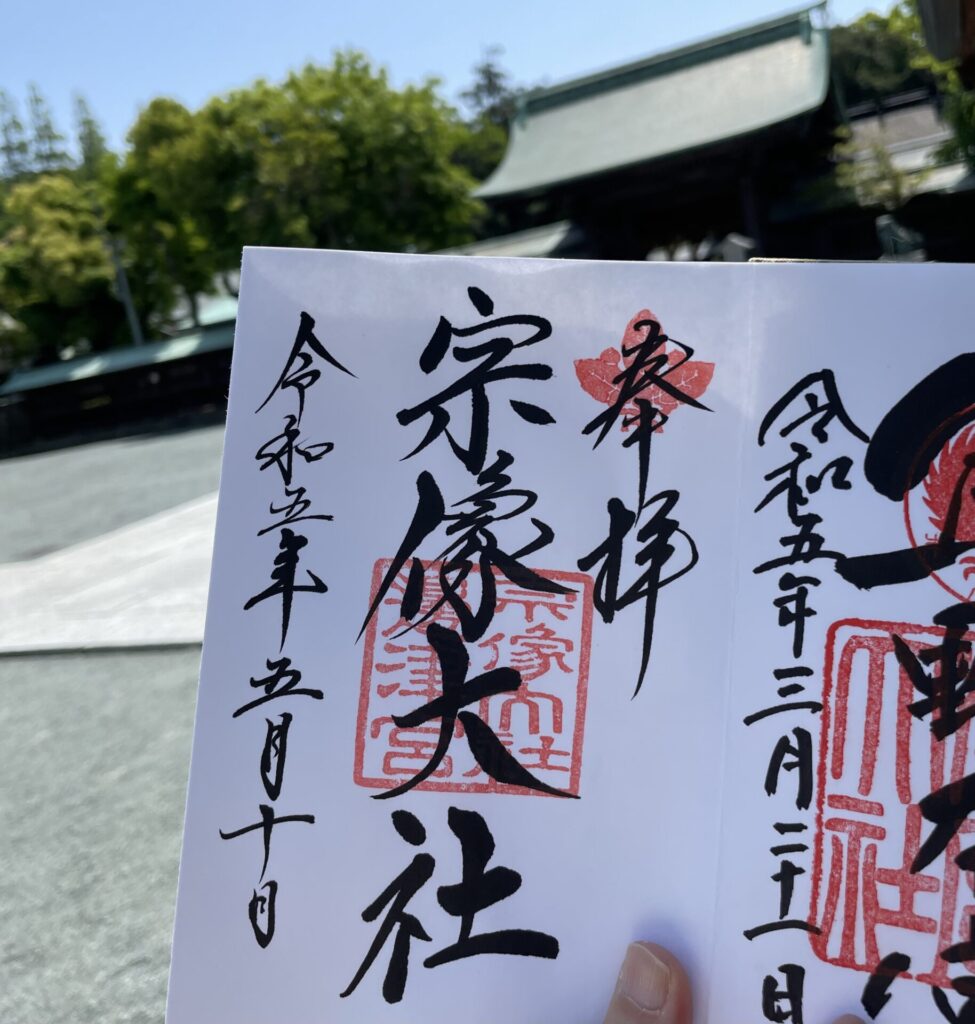 令和五年三月二十一日
奉拝
宗像大社
宗像大社
邊津宮
令和五年五月十日